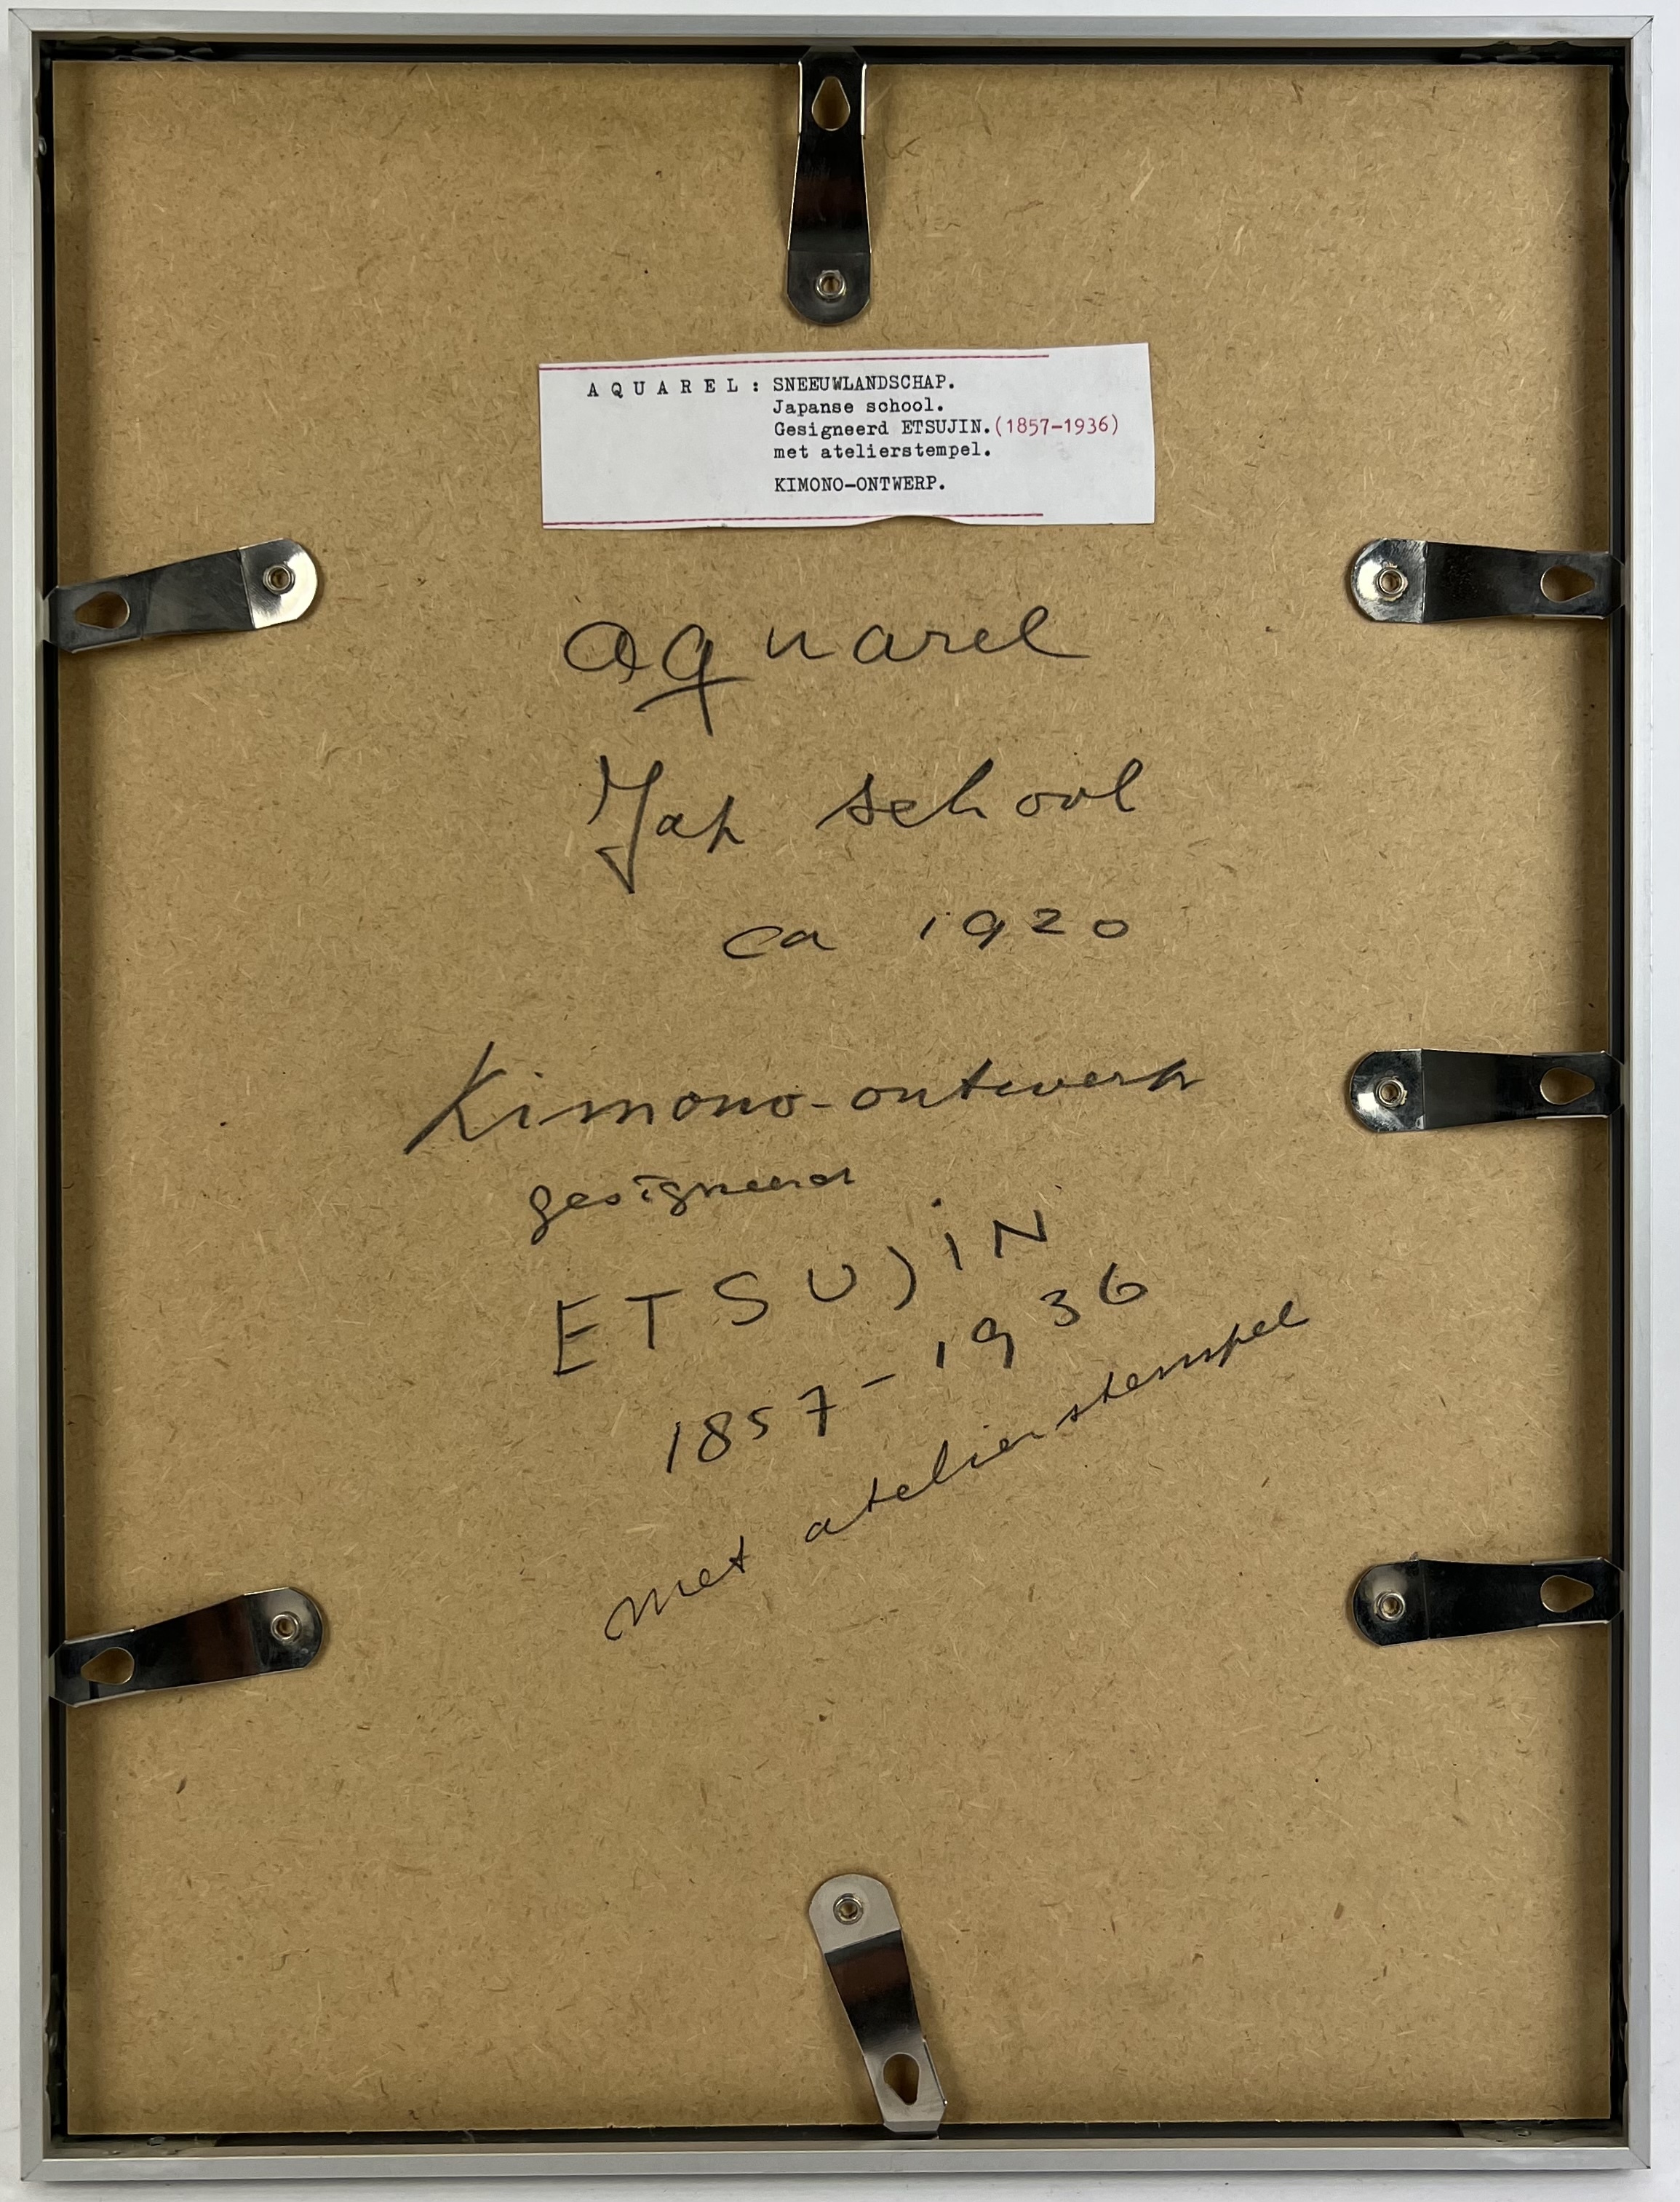 AQUAREL: SNEEUWLANDSCHAP.
Japanse school.
Gesigneerd ETSUJIN.(1857-1936)
met atelierstempel.
KIMONO-ONTWERP.
aquarel
Jap school
ca 1920
Kimono-ontwerp
gesigneerd
ETSUJiN
1857-1936
met atelierstempel